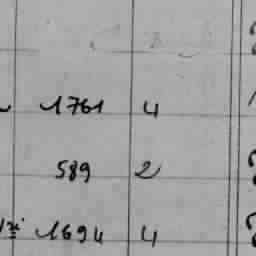 1761 4
589 2
1694 4